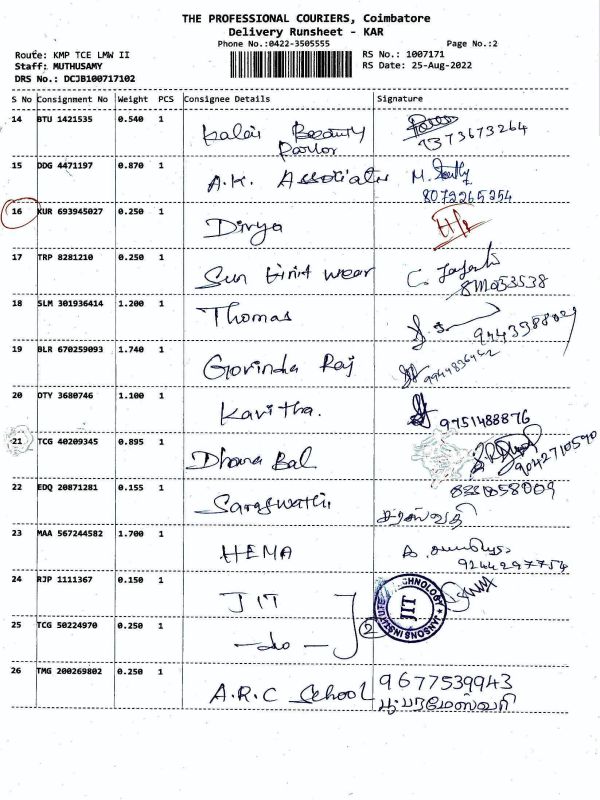 THE PROFESSIONAL COURIERS, Coimbatore
Delivery Runsheet - KAR
Phone No.:0422-3505555
Page No.:2
Route: KMP TCE LMW II
RS No.: 1007171
Staff: MUTHUSAMY
RS Date: 25-Aug-2022
DRS No.: DCJB100717102
S No Consignment No Weight PCS Consignee Details Signature
14 BTU 1421535 0.540 1 Kalai Beauty Parlor
7373673264
15 DDG 4471197 0.870 1 A.K. Associates M.
8072265254
16 KUR 693945027 0.250 1 Divya
17 TRP 8281210 0.250 1 Sun wear C.
18 SLM 301936414 1.200 1 Thomas
19 BLR 670259093 1.740 1 Govinda Raj
20 DTY 3680746 1.100 1 Kavitha. 9751488876
21 TCG 40209345 0.895 1 Dhana Bal
9042710590
22 EDQ 20871281 0.155 1 Saraswathi
சரஸ்வதி
23 MAA 567244582 1.700 1 HEMA
9244297754
24 RJP 1111367 0.150 1 JIT
JIT
25 TCG 50224970 0.250 1 -do- 2
26 TMG 200269802 0.250 1 A.R.C School 9677539943